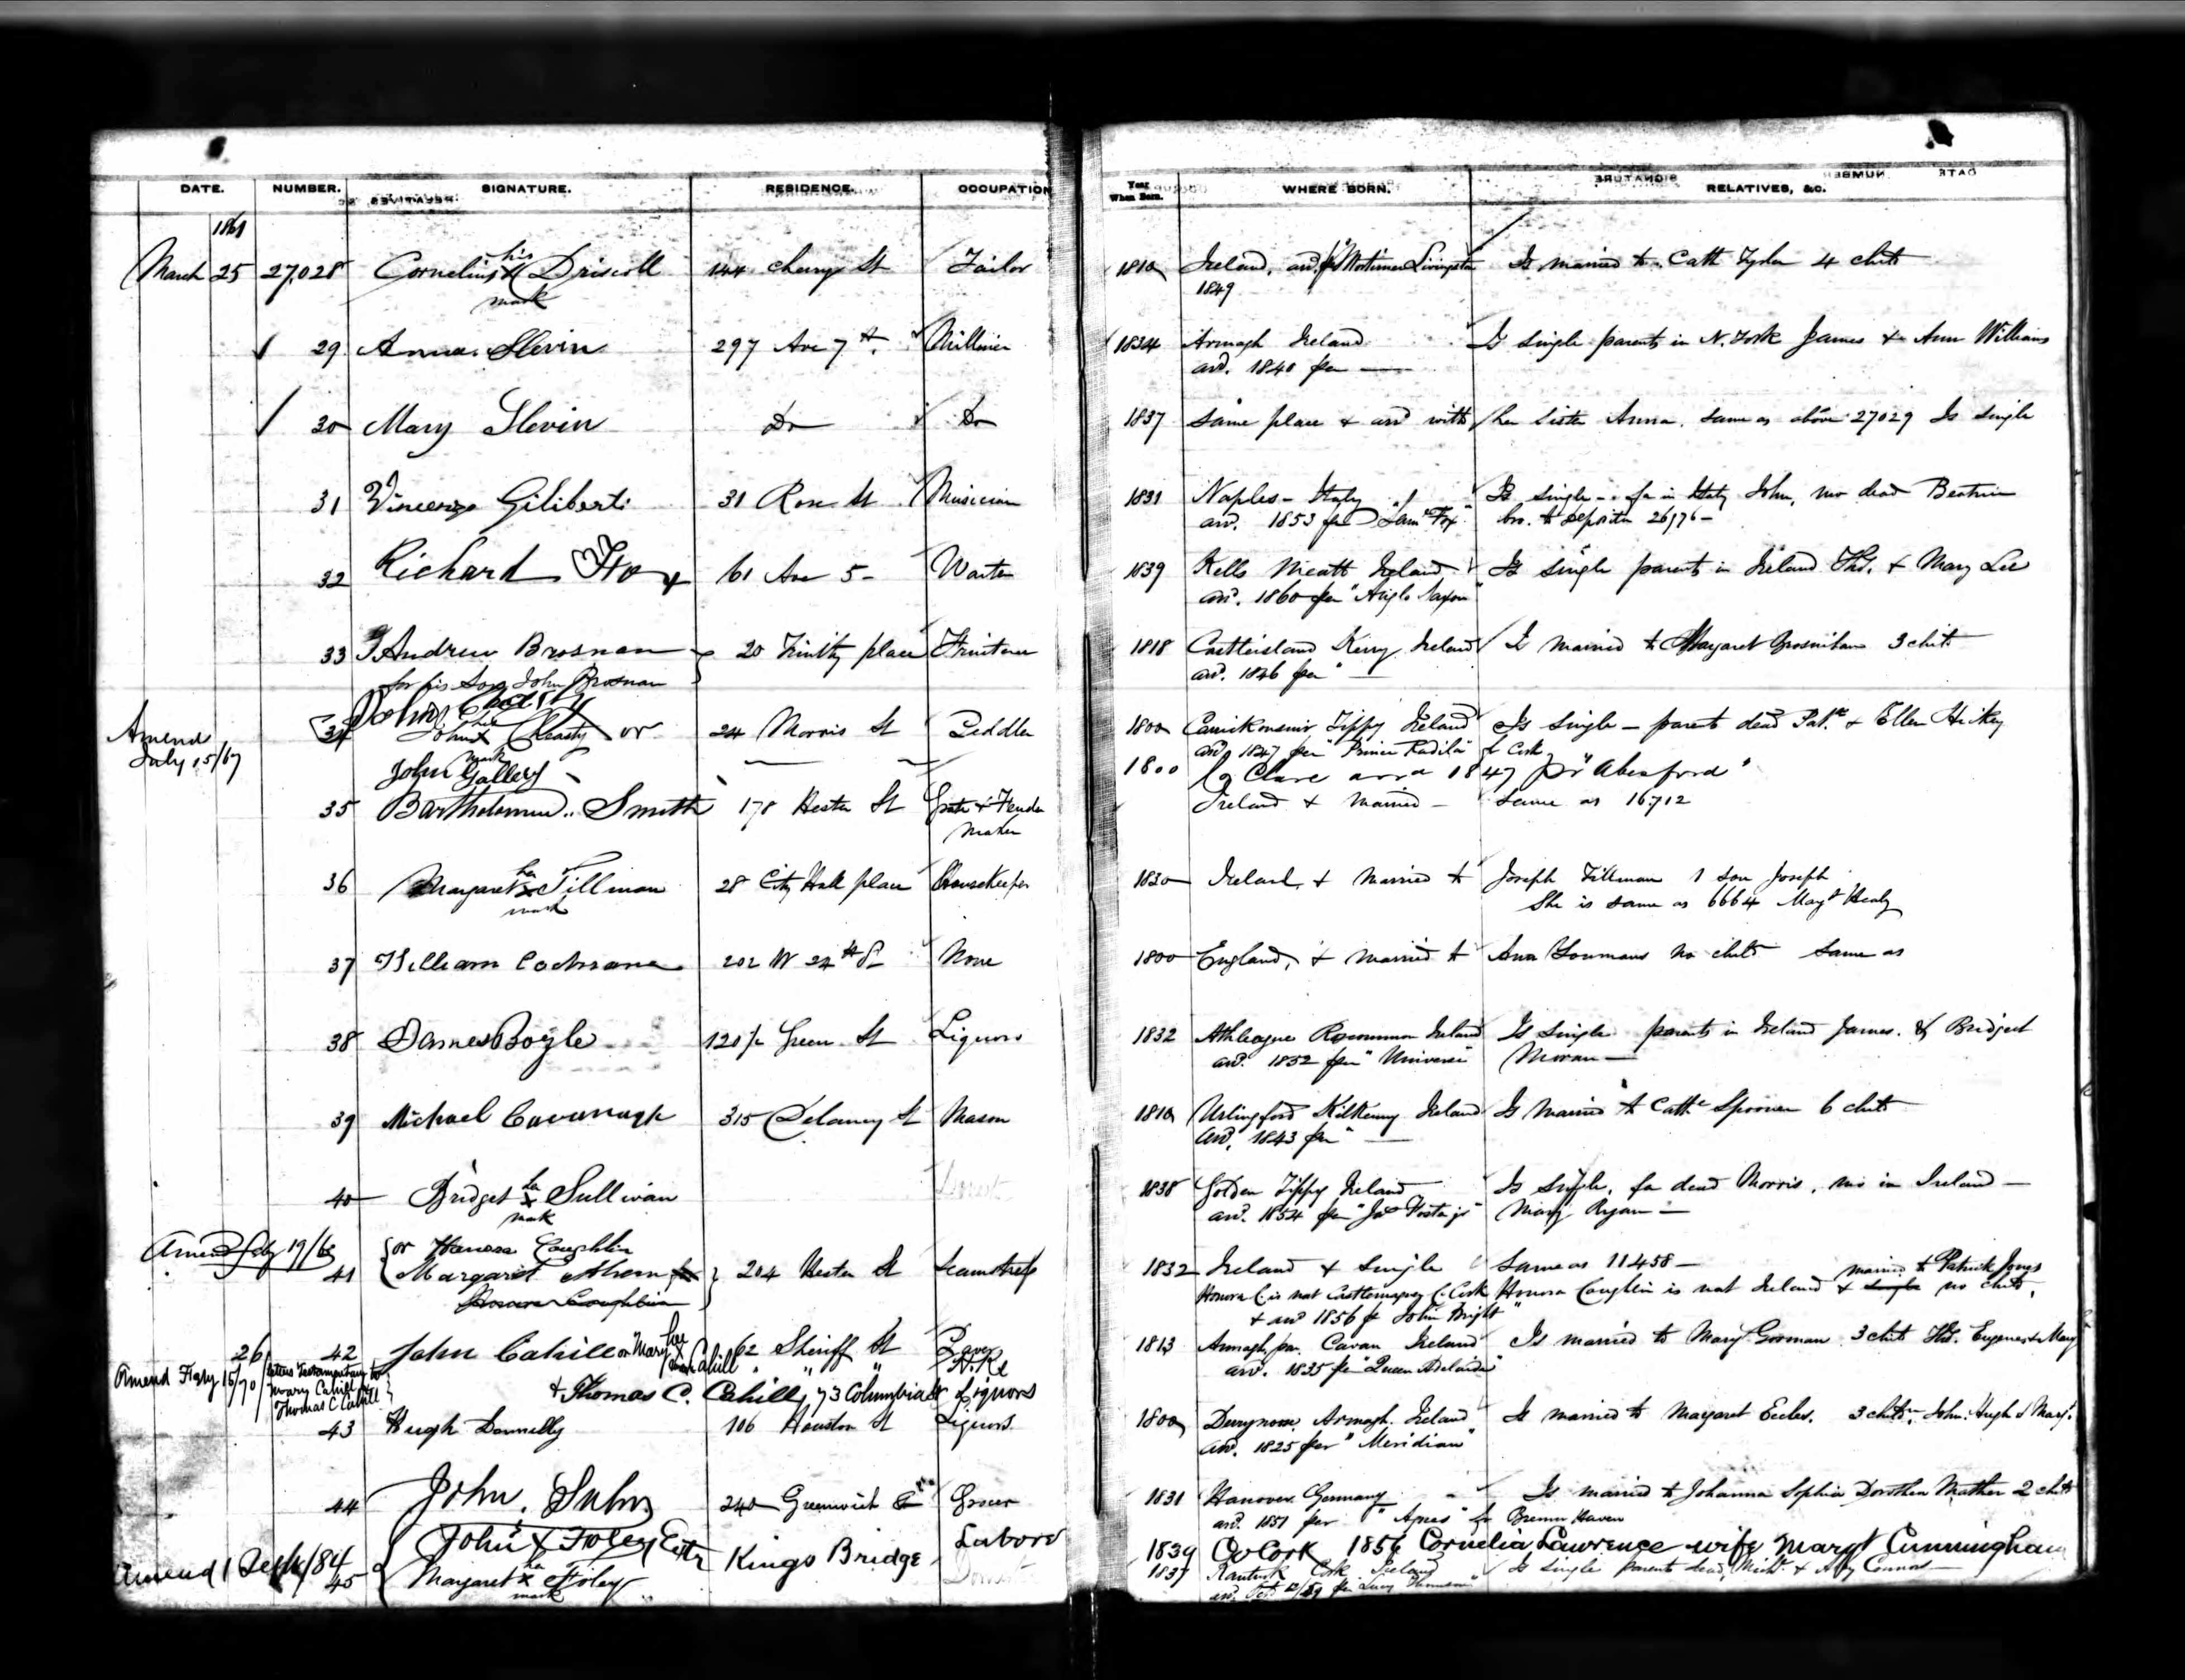 DATE. NUMBER. SIGNATURE. RESIDENCE. OCCUPATION Year When Born. WHERE BORN. RELATIVES, &c.
1861
March 25 27,028 Cornelius his X mark Driscoll 144 Cherry St Tailor 1810 Ireland, arrd. pr Mortimer Livingston Is married to Cath 4 chitd
1849
29 Anna Slevin 297 Ave 7th Milliner 1834 Armagh Ireland Is single parents in N. York James & Ann Williams
arrd. 1840 per —
30 Mary Slevin Do Do 1837 Same place & arrd with her Sister Anna. Same as above 27029 Is single
31 Vincenzo Giliberti 31 Rose St Musician 1831 Naples - Italy Is single - fa in Italy John, mo dead
arrd. 1853 per "Sam Fox" bro. to depositor 26176 -
32 Richard Fox 61 Ave 5 - Waiter 1839 Kells Meath Ireland Is single parents in Ireland Thos. & Mary Lee
arrd. 1860 per "Anglo Saxon"
33 Andrew Brosnan 20 Trinity place Fruiterer 1818 Castleisland Kerry Ireland Is married to Margaret 3 chitd
for his Son John Brosnan arrd. 1846 per " —
John
Amend 34 John his X mark Cleasty or 24 Morris St Peddler 1800 Carrickonsuir Tippy Ireland Is single - parents dead Patk & Ellen Hickey
July 15/67 arrd 1847 per "Prince fr Cork
John Gallery 1800 Co Clare arrd 1847 pr
35 Bartholomew Smith 178 Hester St Grate & Fender Maker Ireland & married - Same as 16712
36 Margaret her X mark Tillman 28 City Hall place Housekeeper 1830 Ireland, & married to Joseph Tillman 1 son Joseph
She is same as 6664 Magt Healy
37 William Cochrane 202 W 24th St None 1800 England, & married to Ann no chitd Same as
38 James Boyle 120½ Green St Liquors 1832 Athleague Roscommon Ireland Is single parents in Ireland James & Bridget
arrd. 1852 per "Universe" Moran —
39 Michael Cavanagh 315 Delancy St Mason 1810 Urlingford Kilkenny Ireland Is married to Cathe Spooner 6 chitd
arrd. 1843 per " —
40 Bridget her X mark Sullivan 1838 Golden Tippy Ireland Is single, fa dead Morris, mo in Ireland —
arrd. 1854 per "Jas Foster jr" Mary Ryan —
Amend Feby 19/63 or Honora Coughlin
41 Margaret Ahern 204 Hester St Seamstress 1832 Ireland & single Same as 11458 — married to Patrick Jones
Honora Coughlin Honora C. is nat Castlemagney C. Cork Honora Coughlin is nat Ireland & single no chitd.
& arrd 1856 pr "John Bright"
26 42 John Cahill or Mary her X mark Cahill 62 Sheriff St 1813 Armagh, Cavan Ireland Is married to Mary Gorman 3 chitd Thos. Eugene & Mary
arrd. 1835 pr "Queen Adelaide"
Amend 15/70 Letters Testamentary to Mary Cahill & Thomas C Cahill
& Thomas C. Cahill 73 Columbia St Liquors
43 Hugh Donnelly 106 Houston St Liquors 1800 Armagh. Ireland Is married to Margaret Eccles. 3 chitdn. John. Hugh & Mary.
arrd. 1825 per "Meridian"
44 John Suhr 240 Greenwich Grocer 1831 Hanover Germany Is married to Johanna Sophia Dorothea Mather 2 chitd
arrd. 1851 per "Agnes" fr Bremer Haven
John X Foley Kings Bridge Labore 1839 Co Cork 1856 Cornelia Lawrence wife Margt Cunningham
Amend 1 Sept/84 45 Margaret her X mark Foley 1837 Kanturk Cork Ireland Is single parents dead, Michl. & Connor —
arrd. per "Lucy Thompson"